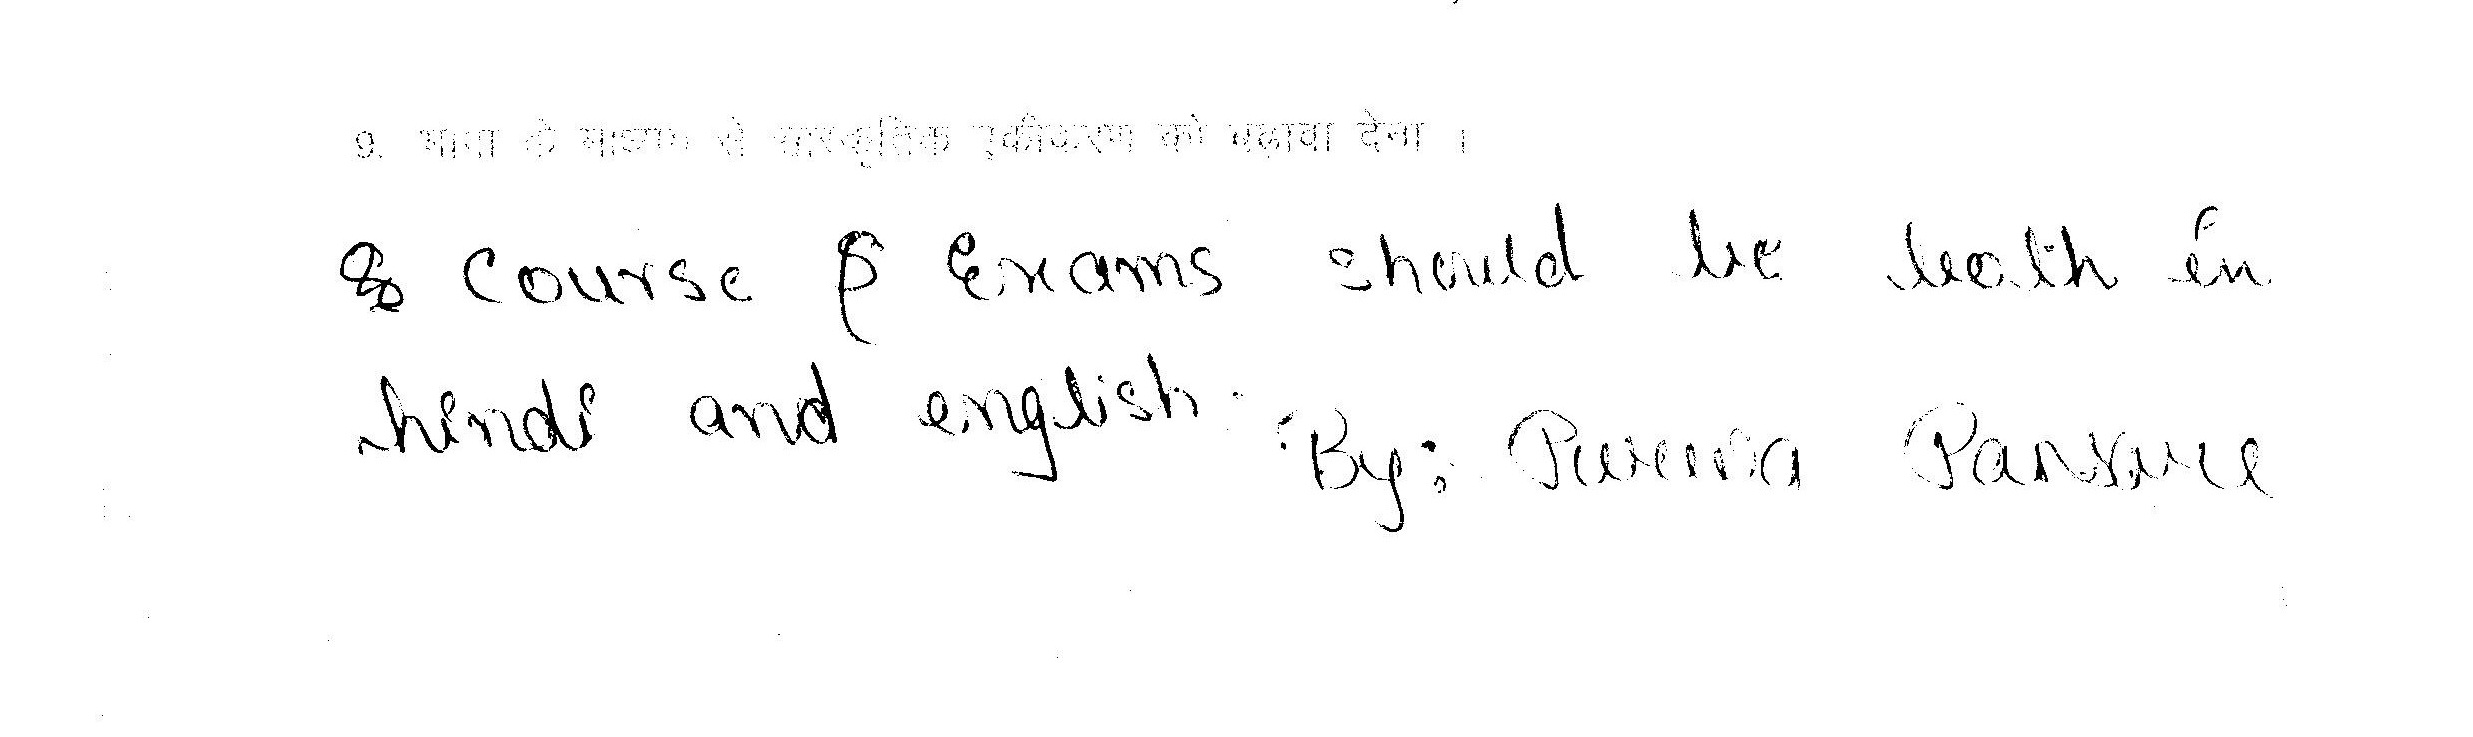 9. भाषा के माध्यम से सांस्कृतिक एकीकरण को बढ़ावा देना ।
& Course & Exams should be both in
hindi and english. By: